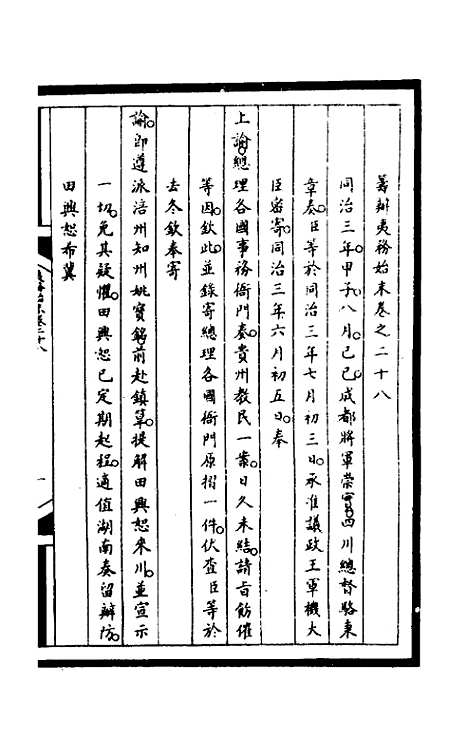 籌辦夷務始末卷之二十八
同治三年甲子八月己巳成都將軍崇實四川總督駱秉
章奏。臣等於同治三年七月初三日。承准議政王軍機大
臣密寄。同治三年六月初五日。奉
上諭。總理各國事務衙門奏貴州教民一案。日久未結。請旨飭催
等因。欽此。並錄寄總理各國衙門原摺一件。伏查臣等於
去冬欽奉寄
諭。即遵派涪州知州姚寶銘前赴鎮筸。提解田興恕來川。並宣示
一切。免其疑懼。田興恕已定期起程。適值湖南奏留辦防。
田興恕希冀